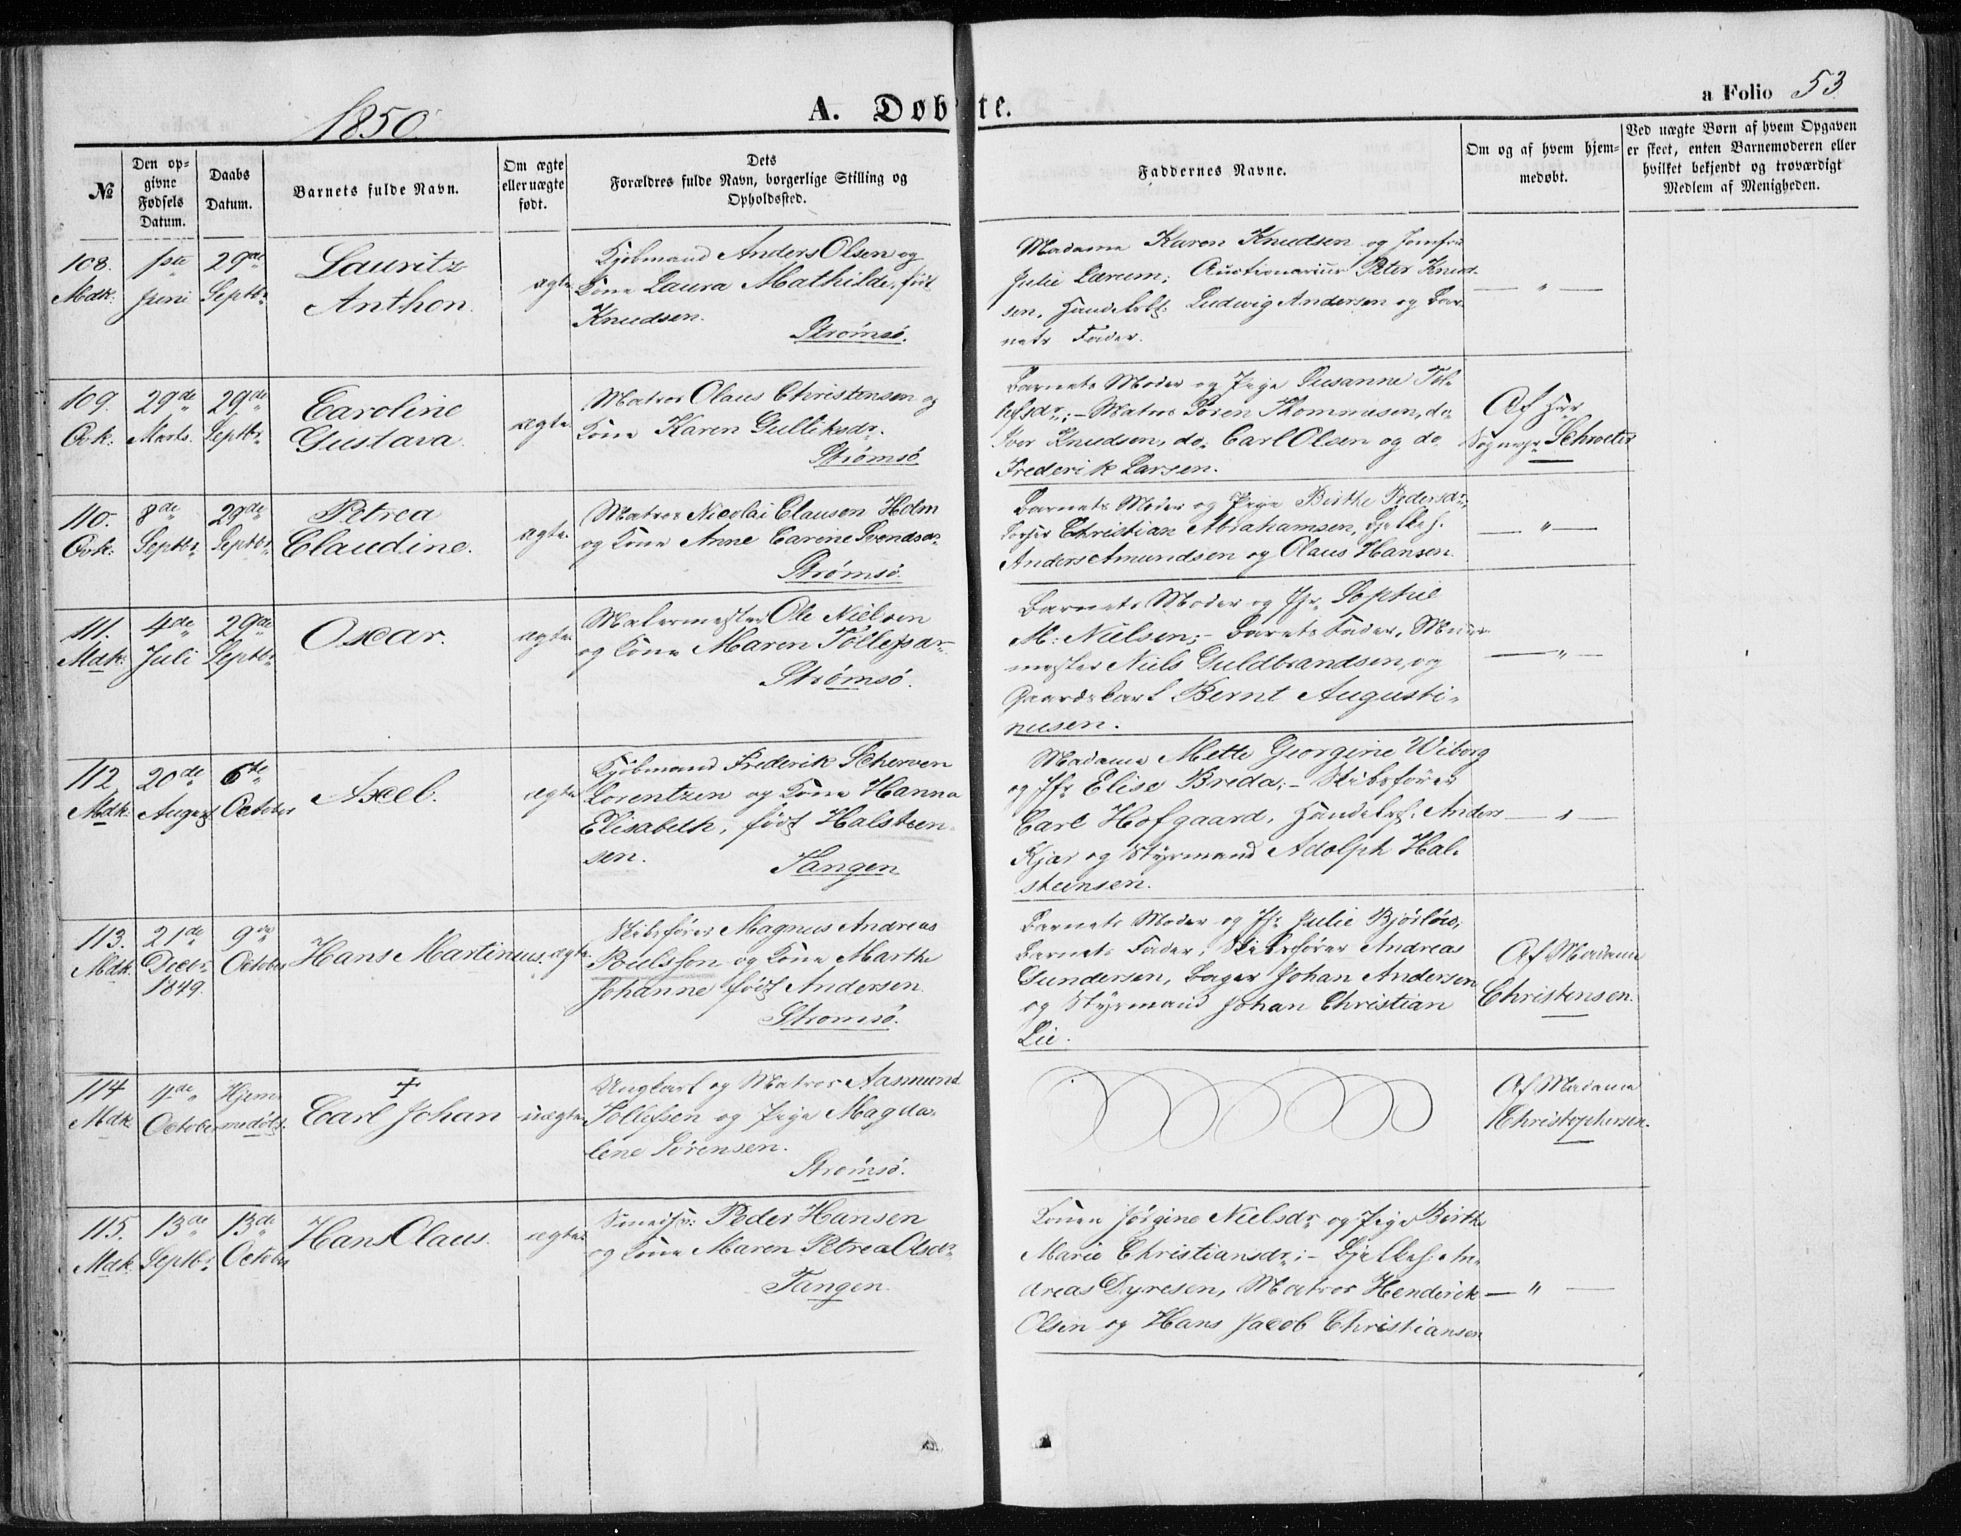 1850
A. Døbte.
a Folio 53
№
Den op-
givne
Fødsels
Datum.
Daabs
Datum.
Barnets fulde Navn.
Om ægte
eller uægte
født.
Dets
Forældres fulde Navn, borgerlige Stilling og
Opholdssted.
Faddernes Navne.
Om og af hvem hjem-
medøbt.
Ved uægte Børn af hvem Opgaven
er skeet, enten Barnemoderen eller
hvilket bekjendt og troværdigt
Medlem af Menigheden.
108.
Mdk.
1ste
Juni
29de
Septbr
Lauritz
Anthon.
ægte
Kjøbmand Anders Olsen og
Kone Laura Mathilde, født
Knudsen.
Strømsø.
Madame Karen Knudsen og Jomfru
Julie Lærum; Auctionarius Peter Knud-
sen, Handelsb: Ludwig Andersen og Bar-
nets Fader.
— " —
109.
Qvk.
29de
Marts.
29de
Septbr
Caroline
Gustava.
ægte
Matros Olaus Christensen og
Kone Karen Gulliksdr.
Strømsø
Barnets Moder og Pige Susanne Tol-
lefsdr; – Matros Søren Thommesen, do
Iver Knudsen, do. Carl Olsen og do
Frederik Larsen.
Af Hr
Sognepr Schroeter
110.
Qvk.
8de
Septbr
29de
Septbr
Petrea
Claudine.
ægte
Matros Nicolai Clausen Holm
og Kone Anne Carine Svendsdr
Strømsø.
Barnets Moder og Pige Birthe Pedersdr;
Christian Abrahamsen, Bjelkeh.
Anders Amundsen og Olaus Hansen.
— " —
111.
Mdk.
4de
Juli
29de
Septbr
Oscar.
ægte
Malermester Ole Nielsen
og Kone Maren Tollefsdr
Strømsø.
Barnets Moder og Jfr. Sophie
M. Nielsen; – Barnets Fader, Muur-
mester Niels Guldbrandsen, og
Gaardskarl Bernt Augusti-
nusen.
— " —
112
Mdk.
20de
August
6te
October
Axel.
ægte
Kjøbmand Frederik Scherven
Lorentzen og Kone Hanna
Elisabeth, født Halsteen-
sen.
Tangen
Madame Mette Georgine Wiborg
og Jfr Elise Breda; – Skibsfører
Carl Hofgaard, Handelsf. Anders
Kjær og Styrmand Adolph Hal-
steensen.
— " —
113.
Mdk.
21de
Decbr
1849.
9de
October
Hans Martinus.
ægte
Skibsfører Magnus Andreas
Poulsson og Kone Marthe
Johanne født Andersen.
Strømsø.
Barnets Moder og Jfr Julie Bjørløw,
Barnets Fader, Skibsfører Andreas
Gundersen, Bager Johan Andersen
og Styrmand Johan Christian
Lie.
Af Madame
Christensen.
114
Mdk.
4de
October
Hjem-
medøbt.
+
Carl Johan
uægte
Ungkarl og Matros Aasmund
Tollefsen og Pige Magda-
lene Sørensen.
Strømsø.
Af Madame
Christophersen.
115.
Mdk.
13de
Septbr
13de
October
Hans Claus.
ægte
Smedsv: Peder Hansen
og Kone Maren Petrea Olsdr
Tangen.
Konen Jørgine Nielsdr og Pige Birthe
Marie Christiansdr; – Bjelkeh: An-
dreas Dyresen, Matros Henderik
Olsen og Hans Jacob Christiansen
— " —